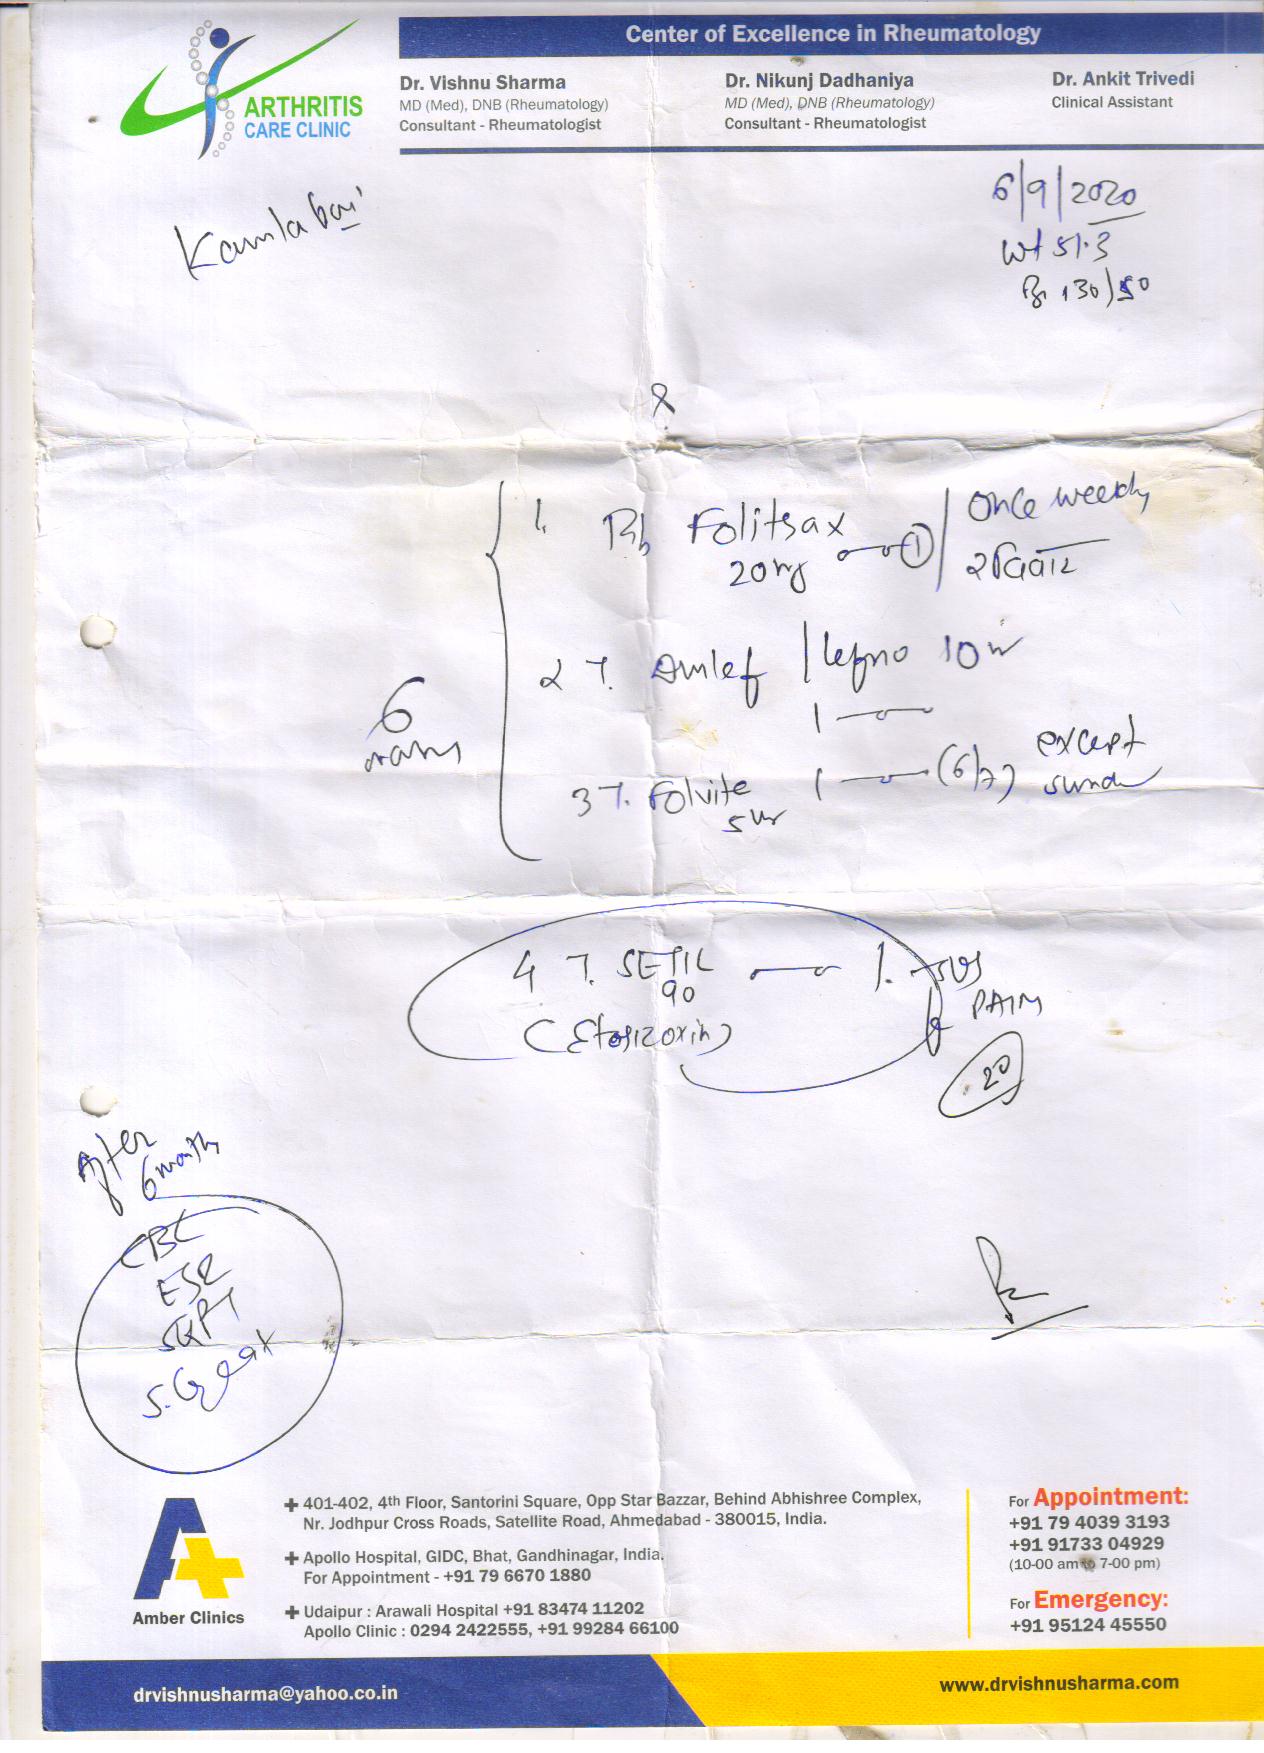 Center of Excellence in Rheumatology
ARTHRITIS
CARE CLINIC
Dr. Vishnu Sharma
MD (Med), DNB (Rheumatology)
Consultant - Rheumatologist
Dr. Nikunj Dadhaniya
MD (Med), DNB (Rheumatology)
Consultant - Rheumatologist
Dr. Ankit Trivedi
Clinical Assistant
Kamla bai
6/9/2020
Wt 51.3
130/50
1. Folitrax Once weekly
20mg 1 रविवार
2 T. Amlef / lefno 10
1
6
3 T. Folvite 1 (6/7) except
5
4 T. SETIL 1. SOS
90 PAIN
(Etorizoxin)
20
After
6 month
CBC
ESR
SGPT
S. Creat
Amber Clinics
401-402, 4th Floor, Santorini Square, Opp Star Bazzar, Behind Abhishree Complex,
Nr. Jodhpur Cross Roads, Satellite Road, Ahmedabad - 380015, India.
Apollo Hospital, GIDC, Bhat, Gandhinagar, India.
For Appointment - +91 79 6670 1880
Udaipur : Arawali Hospital +91 83474 11202
Apollo Clinic : 0294 2422555, +91 99284 66100
For Appointment:
+91 79 4039 3193
+91 91733 04929
(10-00 am to 7-00 pm)
For Emergency:
+91 95124 45550
drvishnusharma@yahoo.co.in
www.drvishnusharma.com